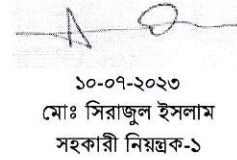 ১০-০৭-২০২৩
মোঃ সিরাজুল ইসলাম
সহকারী নিয়ন্ত্রক-১